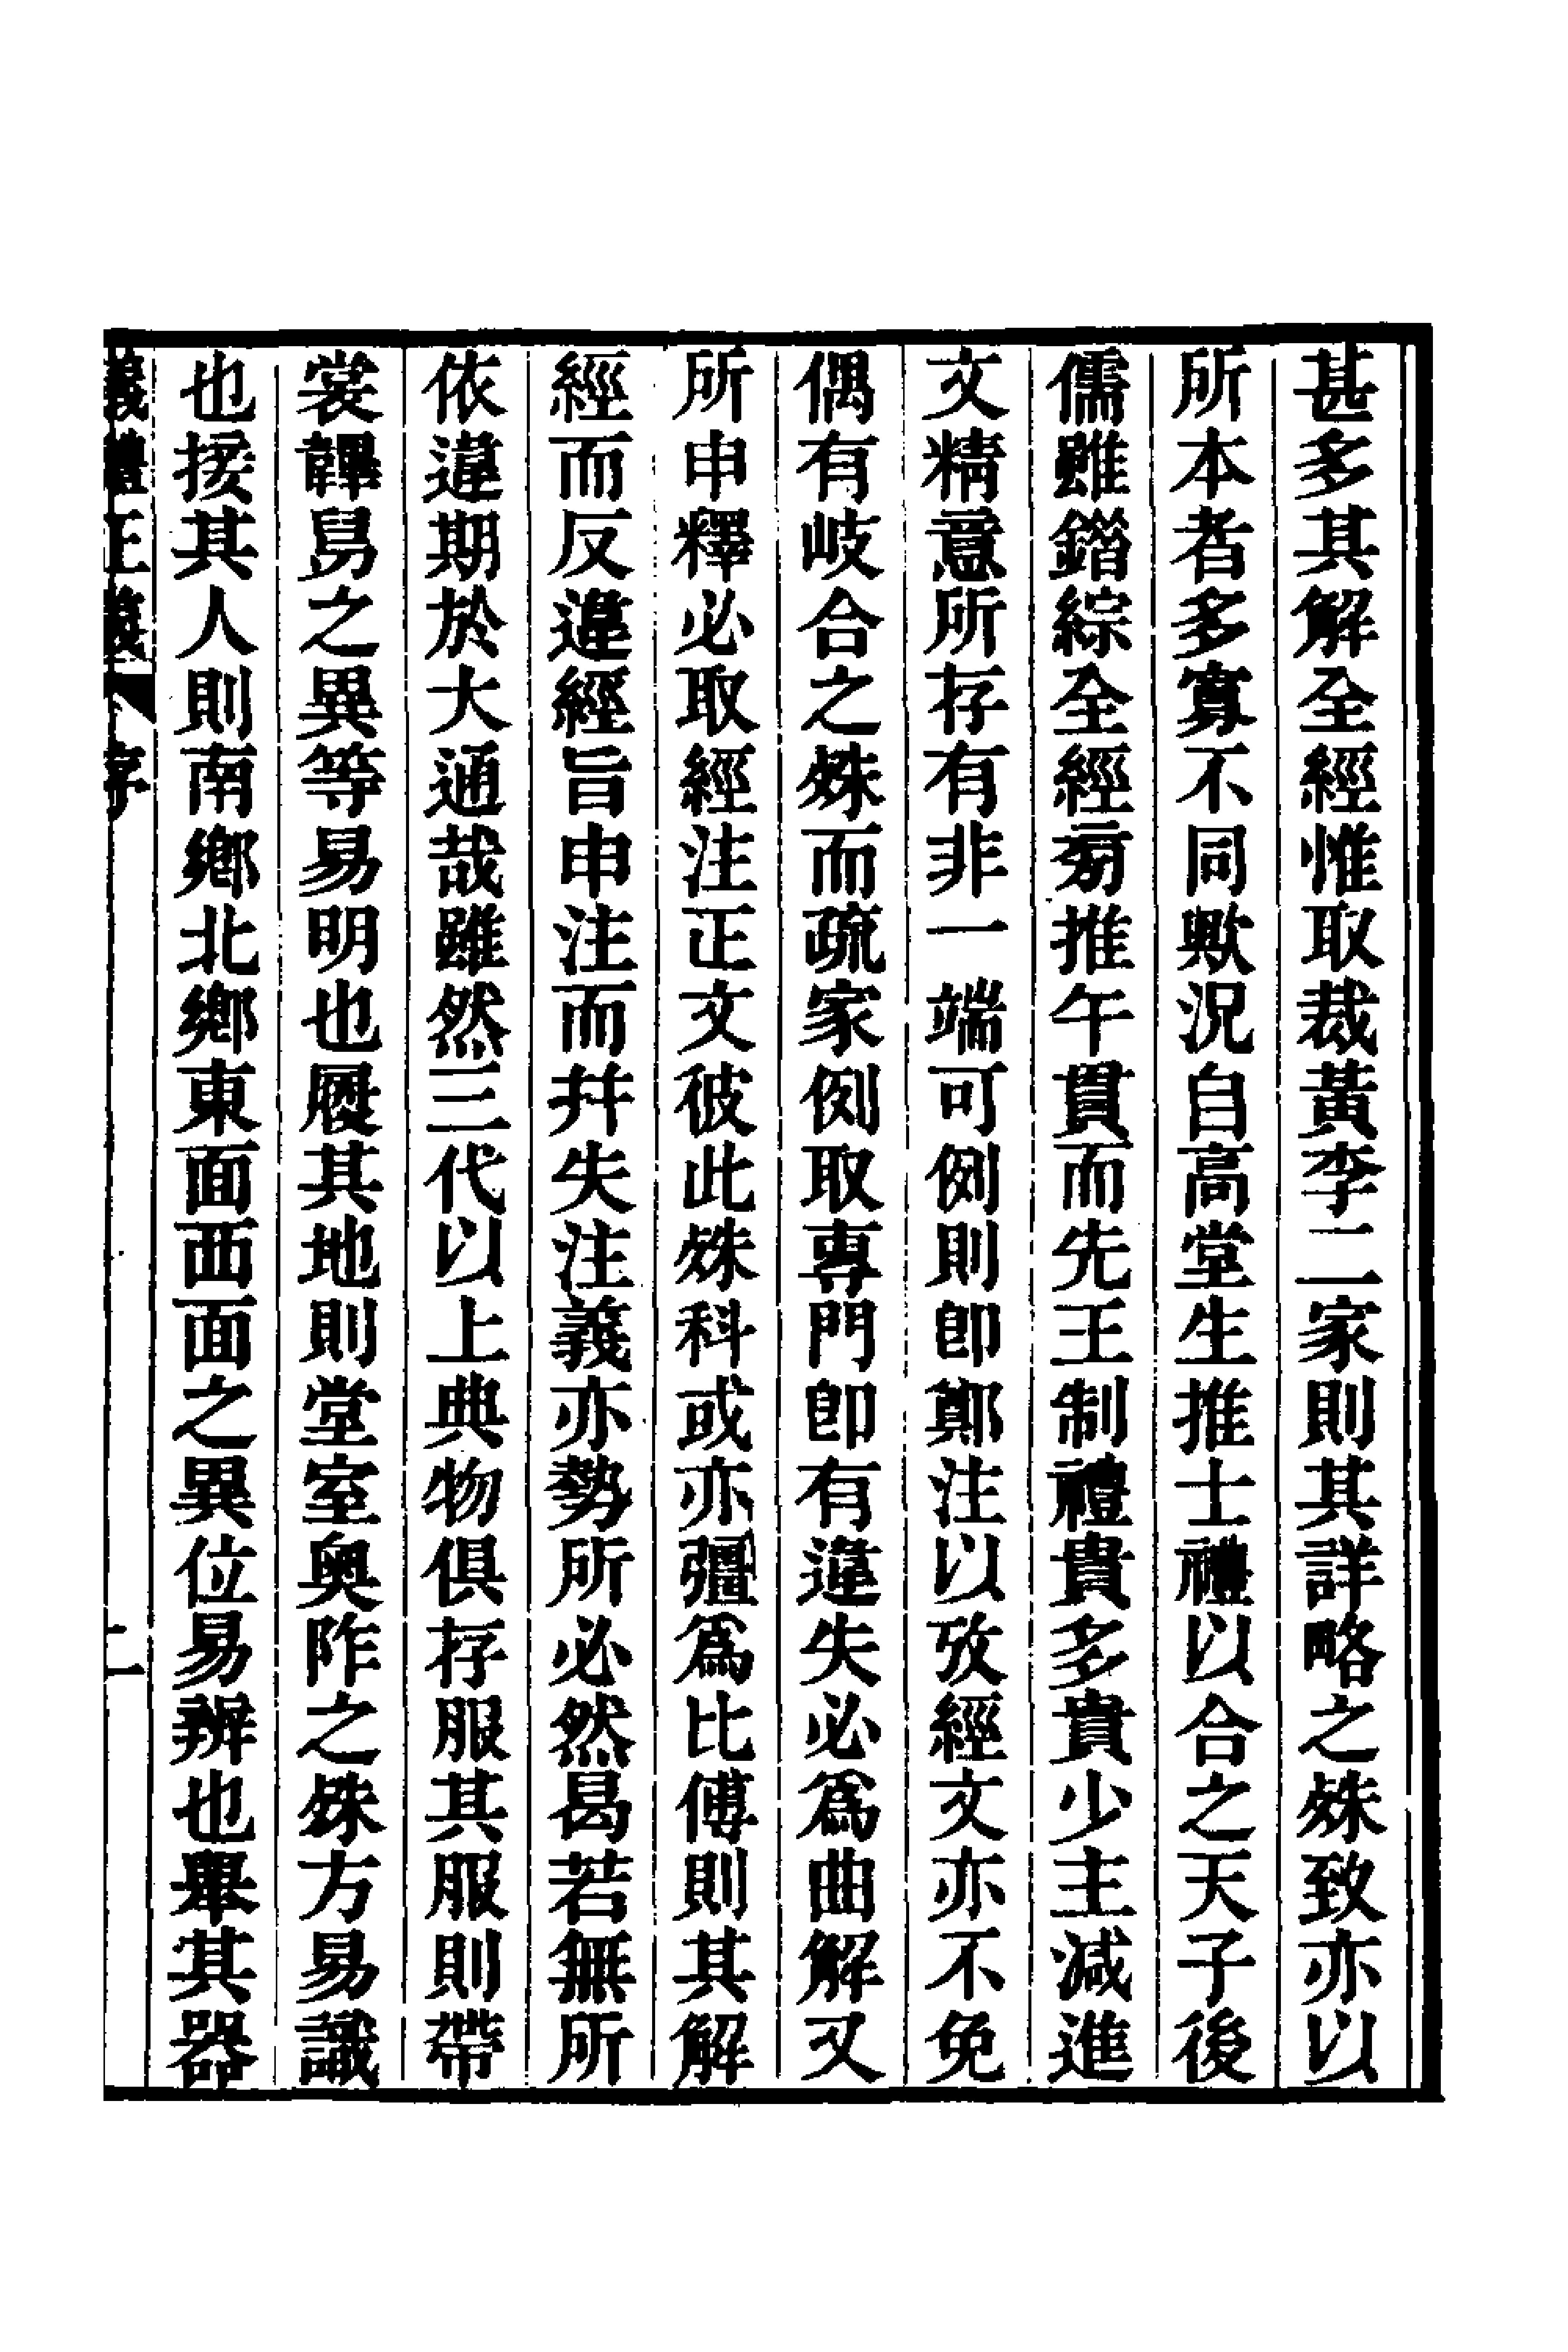 甚多其解全經惟取裁黃李二家則其詳略之殊致亦以
所本者多寡不同歟況自高堂生推士禮以合之天子後
儒雖錯綜全經㫄推午貫而先王制禮貴多貴少主減進
文精意所存有非一端可例則卽鄭注以攷經文亦不免
偶有岐合之殊而疏家例取專門卽有違失必爲曲解又
所申釋必取經注正文彼此殊科或亦彊爲比傅則其解
經而反違經旨申注而幷失注義亦勢所必然曷若無所
依違期於大通哉雖然三代以上典物俱存服其服則帶
裳韠舄之異等易明也履其地則堂室奧阼之殊方易識
也接其人則南鄉北鄉東面西面之異位易辨也舉其器
儀禮正義 序 二